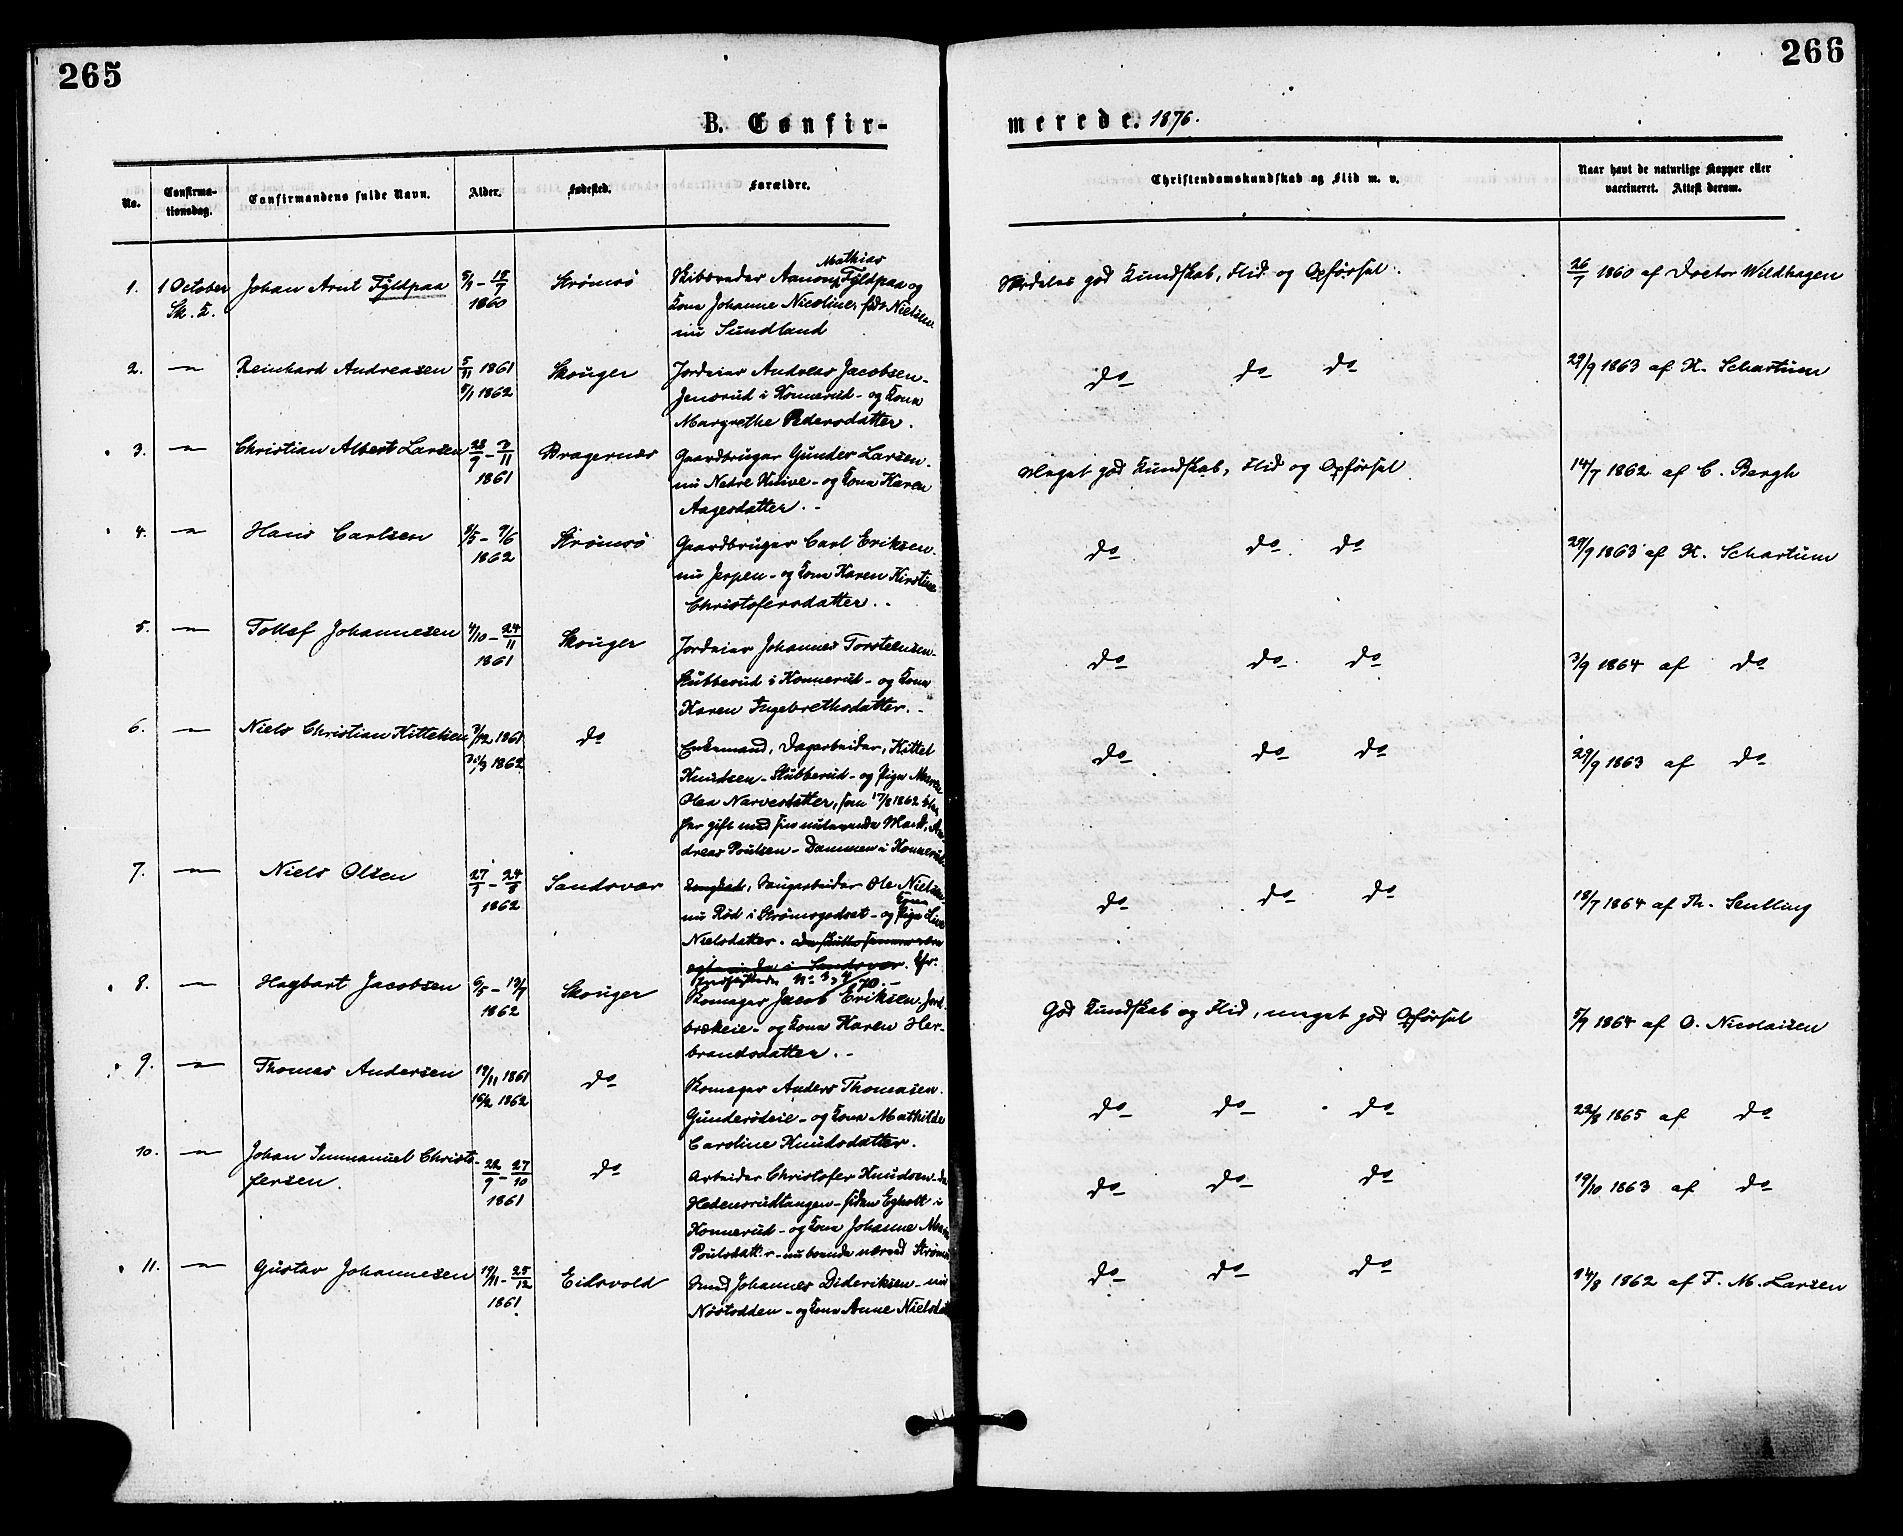 265
266
B. Confir-
merede. 1876.
No.
Confirma-
tionsdag.
Confirmandens fulde Navn.
Alder.
Fødested.
Forældre.
Christendomskundskab og Flid m. v.
Naar havt de naturlige Kopper eller
vaccineret. Attest derom.
1. 1 October Johan Arnt Fyldpaa Strømsø
Sk. K. 1860
Mathias
Skibsreder Fyldpaa og
Kona Johanne Nicoline, født Nielsen
nu Sundland
Særdeles god Kundskab, Flid og Opførsel.
26/7 1860 af Doctor Wildhagen
2. — Reinhard Andreasen 5/11 1861 Skouger
8/1 1862
Jordeier Andreas Jacobsen-
Jensrud i Konnerud - og Kona
Margrethe Pedersdatter.
do do do
29/9 1863 af H. Schartum
3. — Christian Albert Larsen 28/9 - 3/11 Bragernæs
1861
Gaardbruger Gunder Larsen.
nu Nedre Knive - og Kona Karen
Aagesdatter. -
Meget god Kundskab, Flid og Opførsel
14/7 1862 af C. Bergh
4. — Hans Carlsen 8/5 - 9/6 Strømsø
1862
Gaardbruger Carl Eriksen.
nu Jerpen - og Kona Karen Kirstine
Christofersdatter. -
do do do
29/9 1863 af H. Schartum
5. — Tollef Johannesen 4/10 - 24/11 Skouger
1861
Jordeier Johannes Torstensen-
Stubberud i Konnerud - og Kona
Karen Ingebrethsdatter. -
do do do
3/9 1864 af do
6. — Niels Christian Kittelsen 3/12 1861 do
1862
Enkemand, Dagarbeider, Kittel
Knudsen - Stubberud - og Pige Maren
Olea Narvesdatter, som 17/8 1862 blev
her gift med sin nulevende Mand, An-
dreas Poulsen - Dammen i Konnerud.
do do do
29/9 1863 af do
7. — Niels Olsen 27/7 - 24/8 Sandsvær
1862
Ungkarl, Saugarbeider Ole Nielsen
Kona
nu Rød i Strømsgodset - og Pige Live
Nielsdatter.
Sandsvær. Cfr.
No 3, 4/70. -
do do do
18/7 1864 af Th.
8. — Hagbart Jacobsen 6/5 - 19/7 Skouger
1862
Skomager Jacob Eriksen. Jord-
brækeie - og Kona Karen Her-
brandsdatter. -
God Kundskab og Flid, meget god Opførsel
5/9 1864 af O. Nicolaisen
9. — Thomas Andersen 19/11 1861 do
16/2 1862
Skomager Anders Thomasen.
Gunderødeie - og Kona Mathilde
Caroline Knudsdatter.
do do do
22/8 1865 af do
10. — Johan Immanuel Christo-
fersen. 22/9 - 27/10 do
1861
Arbeider Christofer Knudsen -
Hedensrudtangen - siden Egholt i
Konnerud - og Kona Johanne Maria
Poulsdatter - nu boende nærved Strømsø
do do do
19/10 1863 af do
11. — Gustav Johannesen 19/11 - 25/12 Eidsvold
1861.
Smed Johannes Dideriksen - nu
Nøstodden - og Kona Anne Nielsdat
do do do
14/8 1862 af F. M. Larsen